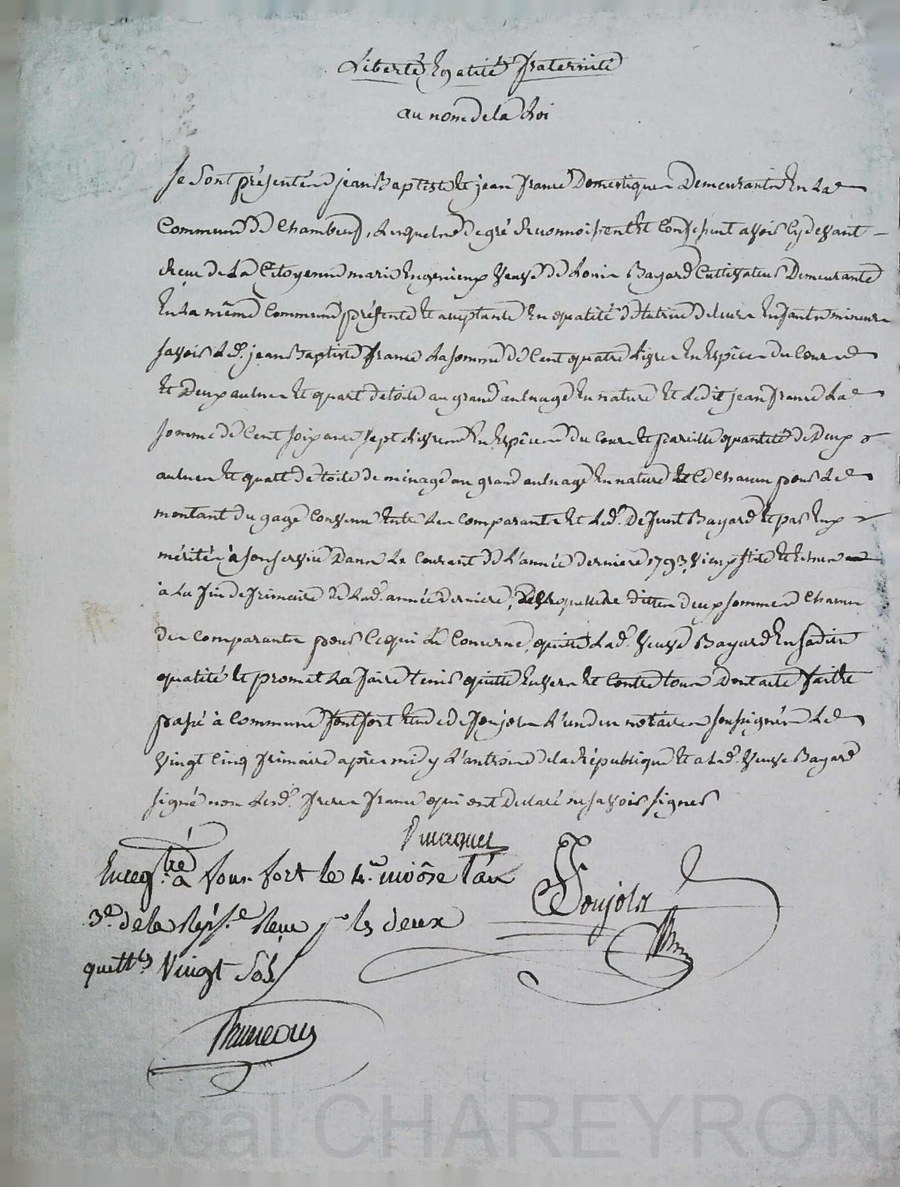 Liberté Egalité fraternité
au nom de la Loi
Se Sont présentés jean Baptiste et jean france Domestiques Demeurants En La
Commune De Chambeuf, Lesquels de gré Reconnoissent et Confessent avoir Cydevant
Reçu de La Citoyenne marie veuve De Louis Bayard Cultivateur Demeurante
En La même Commune présente et acceptante En qualité de tutrice de leurs Enfants mineurs
savoir Led. jean Baptiste france La somme De Cent quatre Livres En Espèces Du Cours
et Deux aulnes et quart de toile au grand aulnage En nature et Ledit jean france La
somme De Cent soixante sept Livres En Espèces du Cours et pareille quantité de Deux
aulnes et quart de toile de ménage au grand aulnage En nature et Ce Chacun pour Le
montant du gage Convenu Entre Les Comparants et Led. Defunt Bayard et par Eux
mérité à son service Dans Le Courant De L'année dernière 1793 vieux stile et Echue
à La fin de frimaire De Lad. année dernière, desquelles dittes deux sommes Chacun
des Comparants pour Ce qui Le Concerne, quitte Lad. veuve Bayard En sadite
qualité et promet La faire tenir quitte Envers et Contre tous Dont acte fait et
passé à Commune fontfort Etude de Soujola L'un des notaires soussignés Le
vingt Cinq frimaire après mидy L'an trois de la République et a Lad. veuve Bayard
signé non Lesd. freres france qui ont Declaré ne savoir signer
Enregtré à fonsfort le 4e nivôse l'an
3e de la Repque Reçu pr les deux
quittes Vingt Sols
Soujola